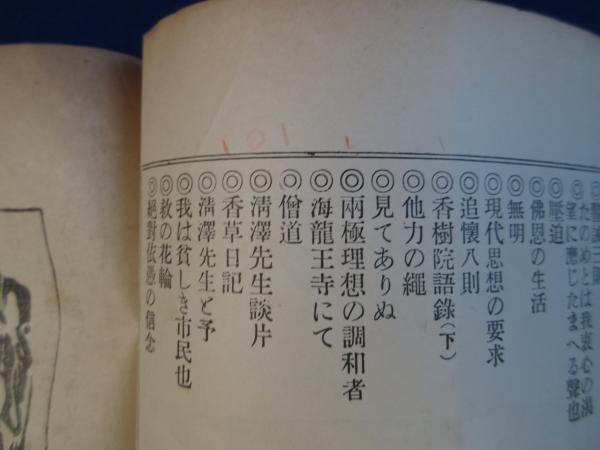 101
◎聲誡三則
◎たのめとは我衷心の渇
望に應じたまへる聲也
◎壓迫
◎佛恩の生活
◎無明
◎現代思想の要求
◎追懷八則
◎香樹院語錄(下)
◎他力の繩
◎見てありぬ
◎兩極理想の調和者
◎海龍王寺にて
◎僧道
◎淸澤先生談片
◎香草日記
◎淸澤先生と予
◎我は貧しき市民也
◎救の花輪
◎絕對依憑の信念